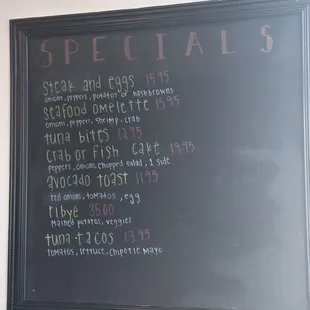 SPECIALS
Steak and eggs 15.95
onions, peppers, potatos or hashbrowns
Seafood omelette 15.95
onions, peppers, shrimp, crab
tuna bites 12.95
Crab or Fish Cake 19.95
Peppers, onions, chopped salad, 1 side
avocado toast 11.95
red onions, tomatos, egg
ribye 35.00
Mashed potatos, veggies
tuna tacos 13.95
tomatos, lettuce, Chipotle mayo